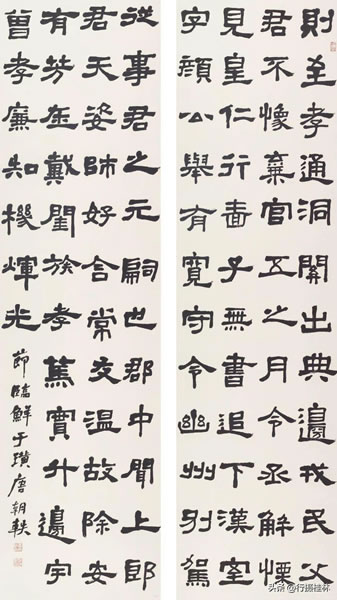 則至孝通洞關出典邊戎民父
君不懷棄官五之月令丞解
見皇仁行嗇子無書追下漢室
字顏公舉有寬守令幽州別駕
從事君之元嗣也郡中聞上郎
君天姿好常溫故除安
有芳戴閨族孝篤實升邊宇
曾孝廉知機煇光
節臨鮮于璜唐朝軼
头条 @行摄桂林